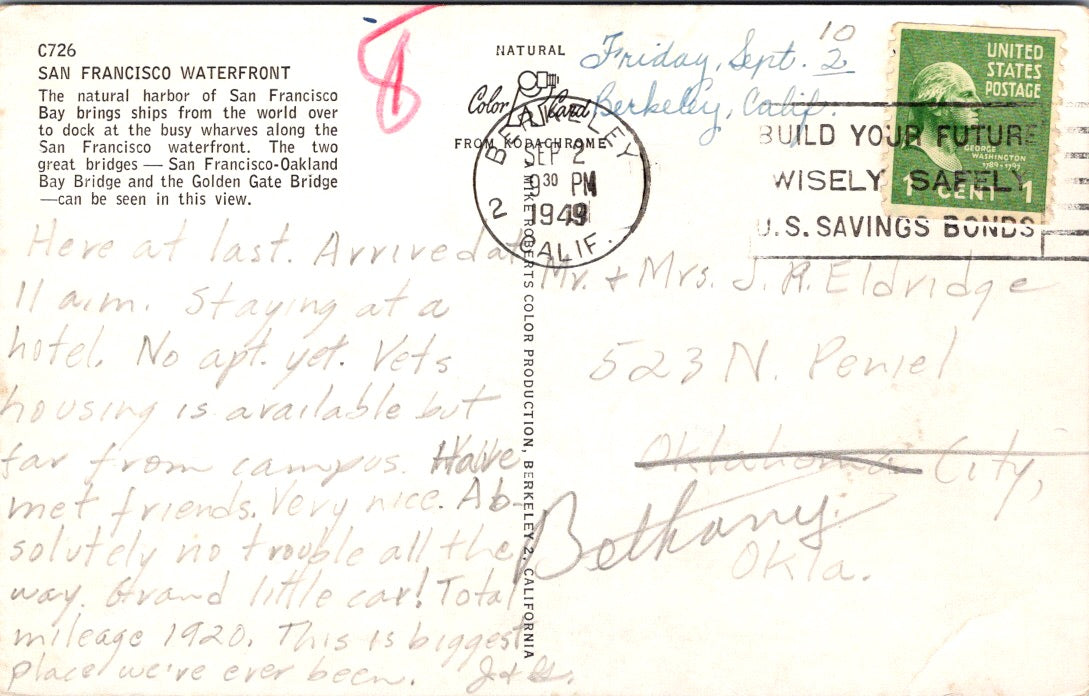 C726
SAN FRANCISCO WATERFRONT
The natural harbor of San Francisco
Bay brings ships from the world over
to dock at the busy wharves along the
San Francisco waterfront. The two
great bridges — San Francisco-Oakland
Bay Bridge and the Golden Gate Bridge
—can be seen in this view.
8
NATURAL
Color Card
FROM KODACHROME
10
Friday, Sept. 2
Berkeley, Calif.
UNITED
STATES
POSTAGE
GEORGE
WASHINGTON
1789-1797
1 CENT 1
BERKELEY
SEP 2
9 30 PM
1949
2 CALIF.
BUILD YOUR FUTURE
WISELY SAFELY
U.S. SAVINGS BONDS
MIKE ROBERTS COLOR PRODUCTION, BERKELEY 2, CALIFORNIA
Here at last. Arrived at
11 a.m. Staying at a
hotel. No apt. yet. Vets
housing is available but
far from campus. Have
met friends. Very nice. Ab-
solutely no trouble all the
way. Grand little car! Total
mileage 1920. This is biggest
place we've ever been. J+
Mr. + Mrs. J. R. Eldridge
523 N. Peniel
Oklahoma City,
Bethany
Okla.